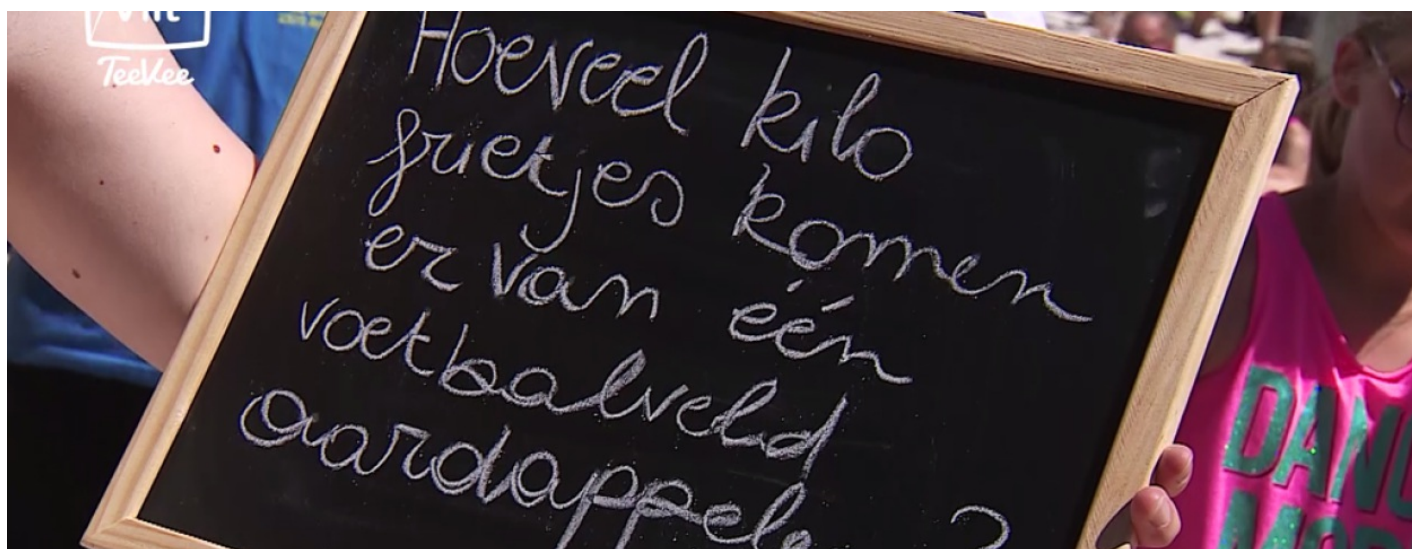 TeeVee
Hoeveel kilo
frietjes komen
er van één
voetbalveld
aardappelen?
DANC